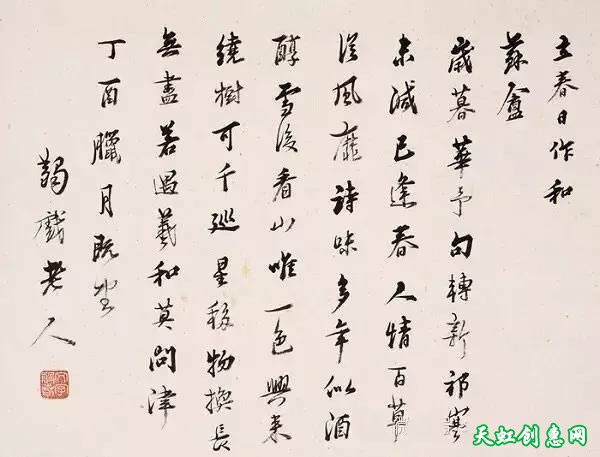 立春日作和
蘇盦
歲暮華予句轉新祁寒
未減已逢春人情百草
從風靡詩味多年似酒
醇雪後看山唯一色興來
繞樹可千巡星移物換長
無盡若遇羲和莫問津
丁酉臘月既望
蠲戲老人
天虹创意网